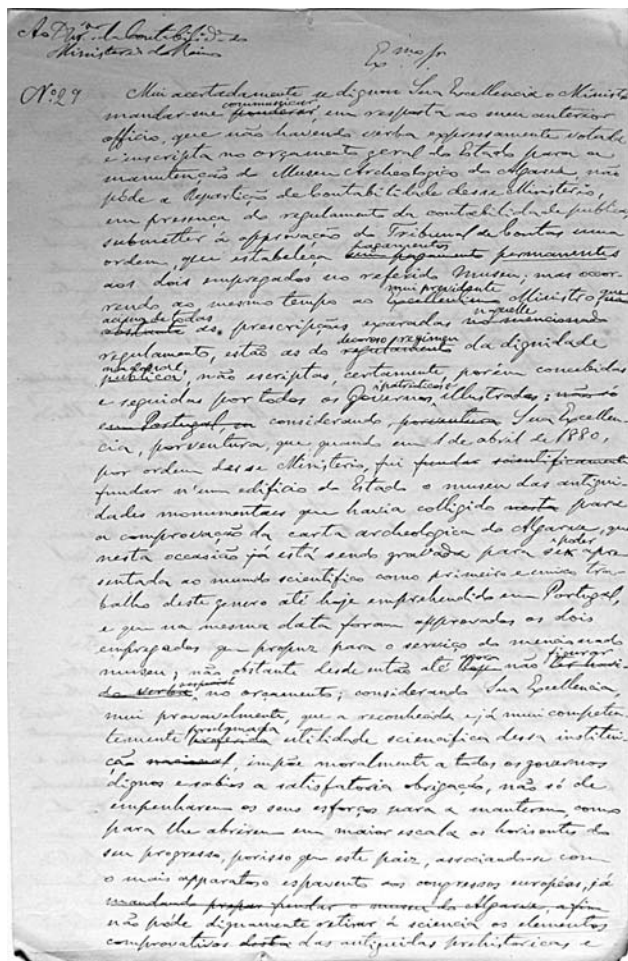 Ao Dir.or da Contabilid.e do
Ministerio do Reino
Ex.mo Sr.
Nº 29 Mui acertadamente se dignou Sua Excellencia o Ministro
communicar
mandar-me ponderar, em resposta ao meu anterior
officio, que não havendo verba expressamente votada
e inscripta no orçamento geral do Estado para a
manutenção do Museu Archeologico do Algarve, não
póde a Repartição de Contabilidade desse Ministerio,
em presença do regulamento da contabilidade publica
submetter á approvação do Tribunal de Contas uma
pagamentos
ordem, que estabeleça um pagamento permanentes
aos dois empregados no referido Museu; mas occor-
mui previdente
rendo ao mesmo tempo ao Excellentissimo Ministro que
acima de todas n'aquelle
as prescripções exaradas no mencionado
decoroso
regulamento, estão as do regulamento da dignidade
nacional,
publica, não escriptas, certamente, porém concebidas
e patrioticos
e seguidas por todos os Governos illustrados; não só
em Portugal, considerando porventura Sua Excellen-
cia, porventura, que quando em 1 de abril de 1880,
por ordem desse Ministerio, fui fundar scientificamente
fundar n'um edificio do Estado o museu das antigui-
dades monumentaes que havia colligido nesta para
a comprovação da carta archeologica do Algarve, que
poder
nesta occasião já está sendo gravada para ser apre-
sentada ao mundo scientifico como primeiro e unico tra-
balho deste genero até hoje emprehendido em Portugal,
e que na mesma data foram approvados os dois
empregados que propuz para o serviço do mencionado
agora figurar
museu; não obstante desde então até hoje não ter havi-
do verba no orçamento; considerando Sua Excellencia,
mui provavelmente, que a reconhecida e já mui competen-
proclamada
temente proferida utilidade scientifica dessa institui-
ção nacional, impõe moralmente a todos os governos
dignos e sabios a satisfatoria obrigação, não só de
empenharem os seus esforços para a manterem, como
para lhe abrirem em maior escala os horisontes do
seu progresso, porisso que este paiz, associando-se com
o mais apparatoso espavento aos congressos europêos, já
mandando fundar o museu do Algarve, a fim
não póde dignamente retirar á sciencia os elementos
comprovativos das antiguidas prehistoricas e